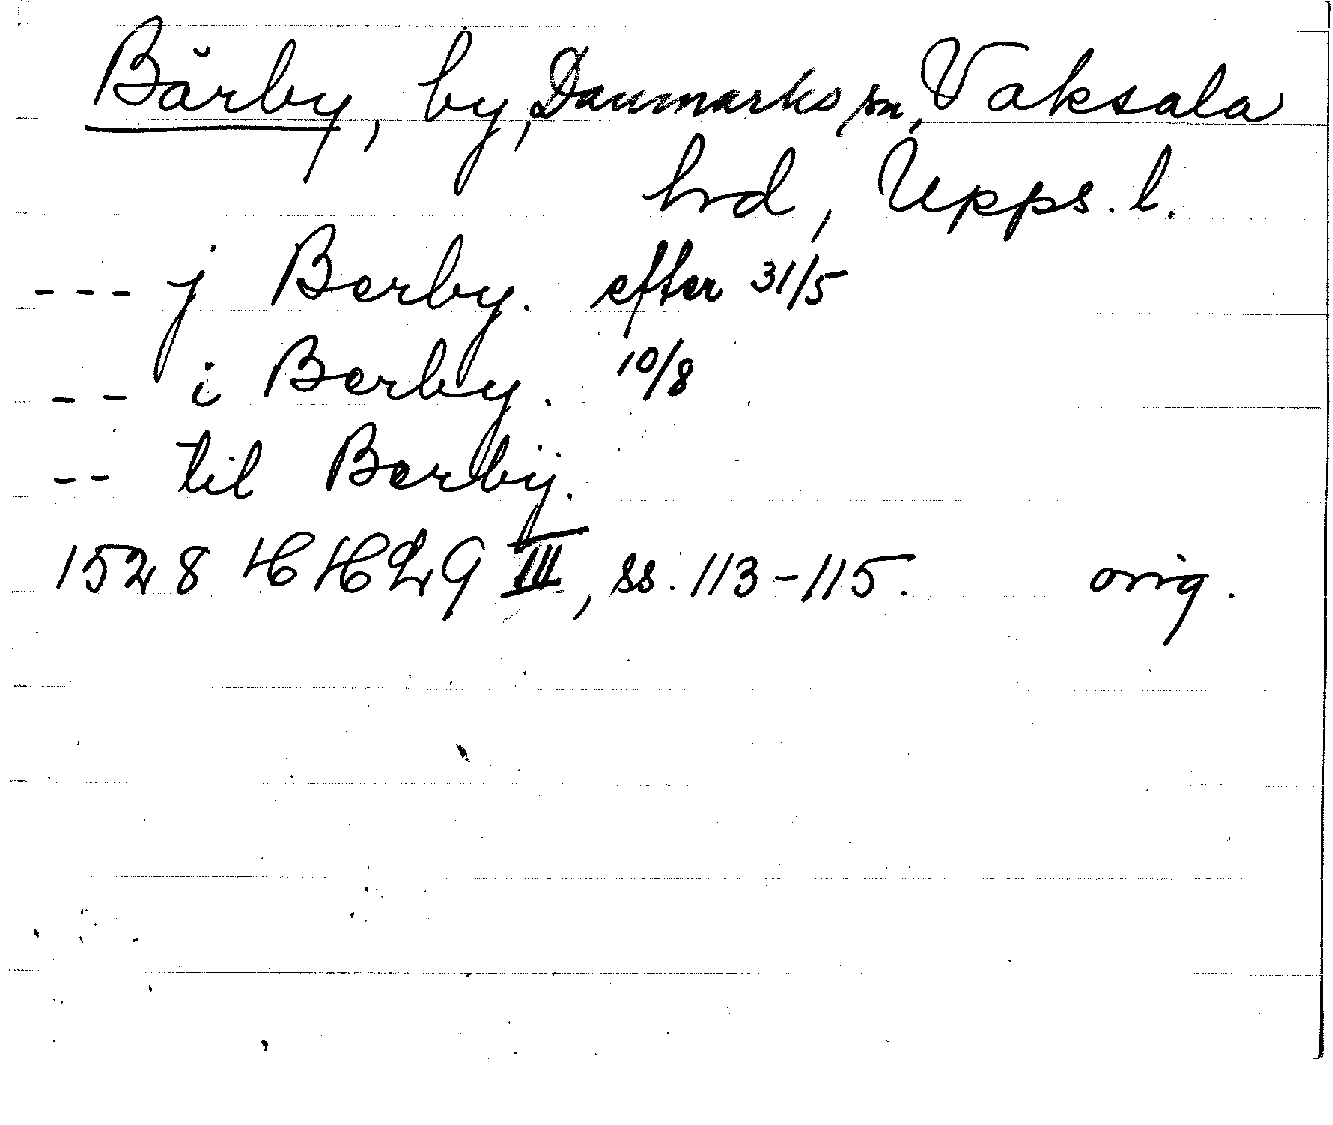 Bärby, by, Danmarks sn, Vaksala
hrd, Upps. l.
--- j Berby. efter 31/5
-- i Berby. 10/8
-- til Berbÿ.
1528 HHLG III, ss. 113-115. orig.